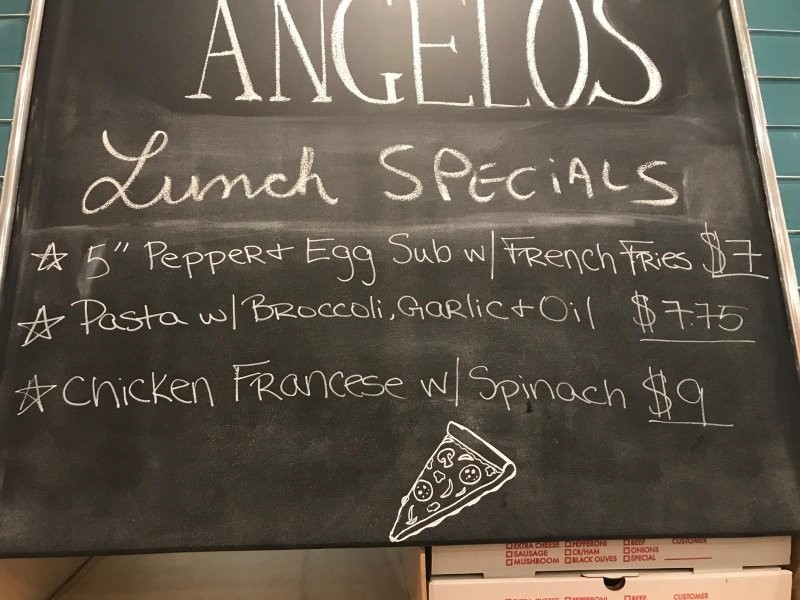 ANGELOS
Lunch SPECiALS
☆ 5" Pepper + Egg Sub w/ French Fries $7
☆ Pasta w/ Broccoli, Garlic + Oil $7.75
☆ Chicken Francese w/ Spinach $9
EXTRA CHEESE PEPPERONI BEEF CUSTOMER
SAUSAGE CB/HAM ONIONS
MUSHROOM BLACK OLIVES SPECIAL
EXTRA CHEESE PEPPERONI BEEF CUSTOMER